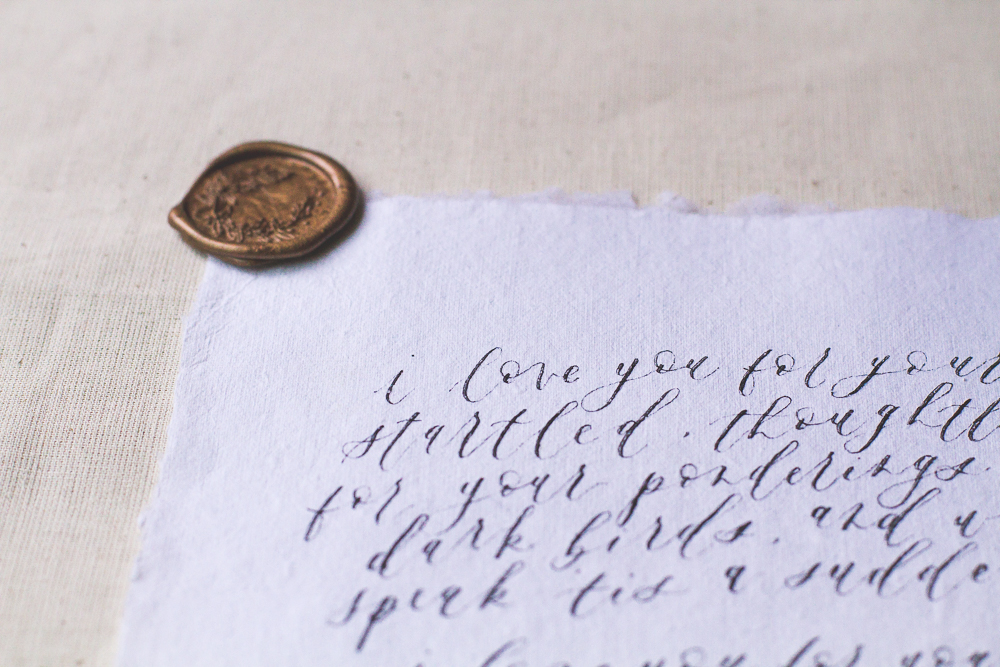 i love you for your
startled. thoughtl
for your ponderings.
dark birds. and w
speak tis a sudde
i love you for you